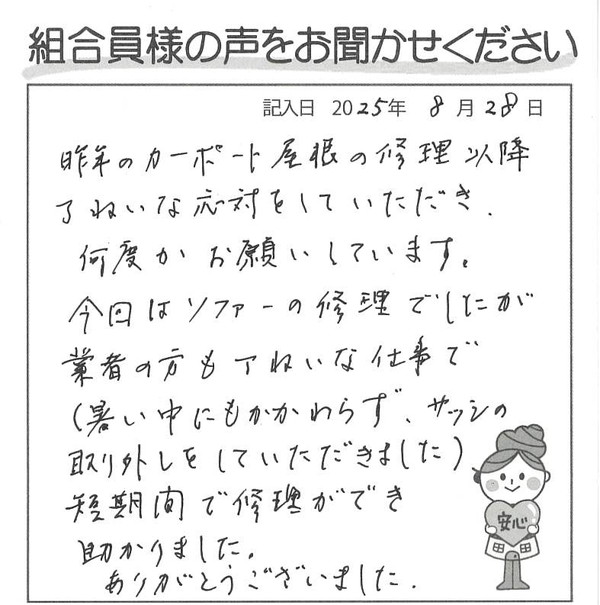 組合員様の声をお聞かせください
記入日 2025年 8月28日
昨年のカーポート屋根の修理以降
丁ねいな応対をしていただき、
何度かお願いしています。
今回はソファーの修理でしたが
業者の方も丁ねいな仕事で
(暑い中にもかかわらず、サッシの
取り外しをしていただきました)
短期間で修理ができ
助かりました。
ありがとうございました。
安心